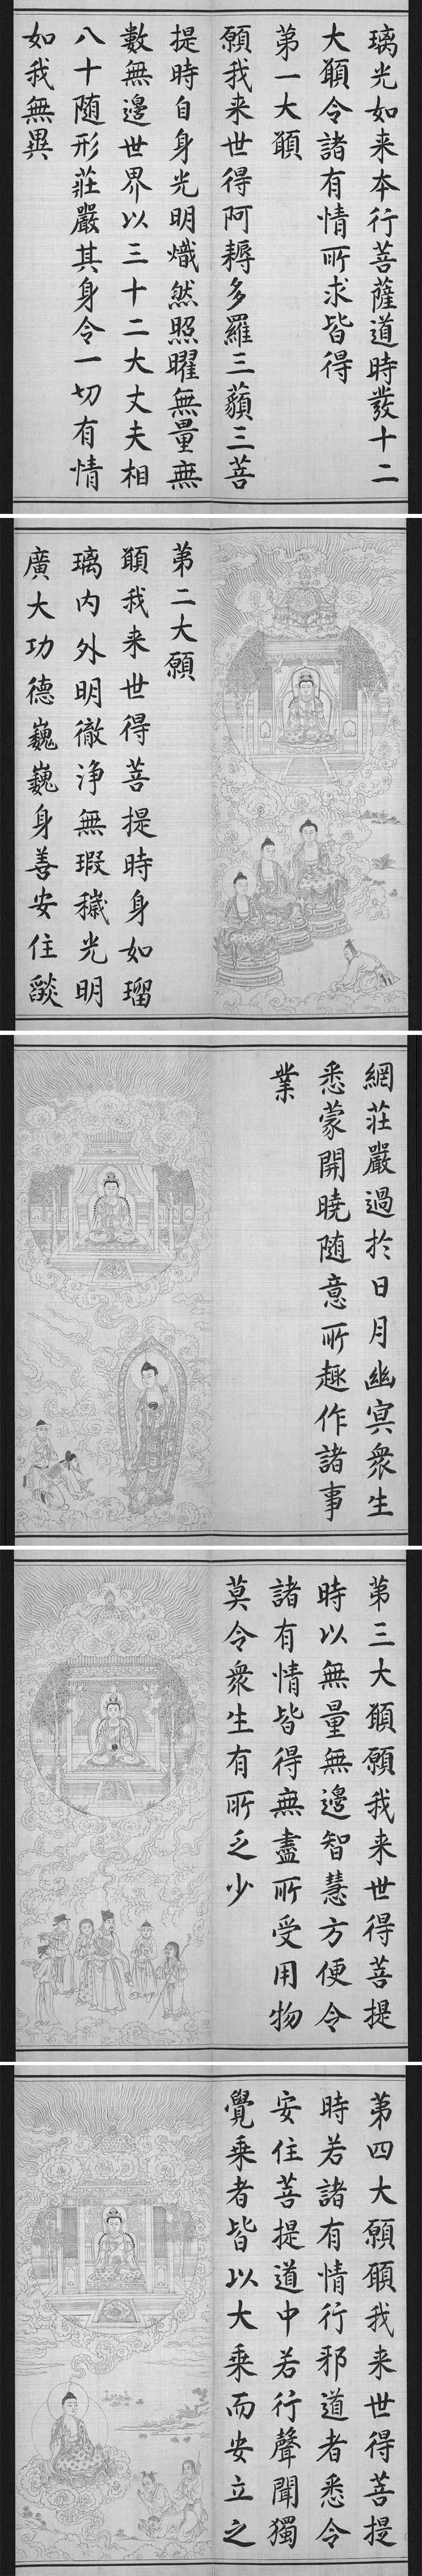 璃光如来本行菩薩道時發十二
大願令諸有情所求皆得
第一大願
願我来世得阿耨多羅三藐三菩
提時自身光明熾然照曜無量無
數無邊世界以三十二大丈夫相
八十随形莊嚴其身令一切有情
如我無異
第二大願
願我来世得菩提時身如瑠
璃内外明徹淨無瑕穢光明
廣大功德巍巍身善安住燄
網莊嚴過於日月幽冥衆生
悉蒙開曉随意所趣作諸事
業
第三大願願我来世得菩提
時以無量無邊智慧方便令
諸有情皆得無盡所受用物
莫令衆生有所乏少
第四大願願我来世得菩提
時若諸有情行邪道者悉令
安住菩提道中若行聲聞獨
覺乘者皆以大乘而安立之